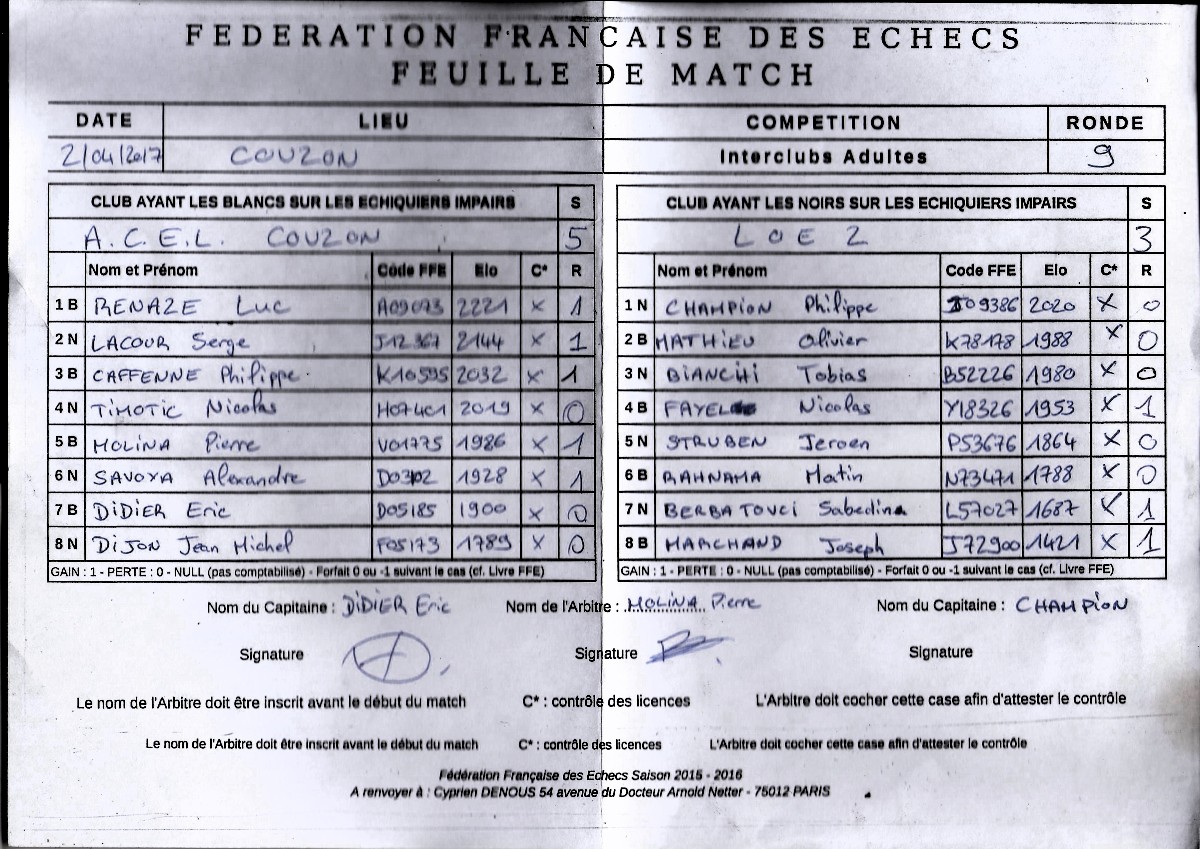 FEDERATION FRANCAISE DES ECHECS
FEUILLE DE MATCH
DATE LIEU COMPETITION RONDE
2/04/2017 COUZON Interclubs Adultes 9
CLUB AYANT LES BLANCS SUR LES ECHIQUIERS IMPAIRS S CLUB AYANT LES NOIRS SUR LES ECHIQUIERS IMPAIRS S
A.C.E.L. COUZON 5 LOE 2 3
Nom et Prénom Code FFE Elo C* R Nom et Prénom Code FFE Elo C* R
1 B RENAZE Luc A09073 2221 x 1 1 N CHAMPION Philippe J09386 2020 x 0
2 N LACOUR Serge J12367 2144 x 1 2 B MATHIEU Olivier K78178 1988 x 0
3 B CAFFENNE Philippe K10595 2032 x 1 3 N BIANCHI Tobias B52226 1980 x 0
4 N TIMOTIC Nicolas H07401 2019 x 0 4 B FAYEL Nicolas Y18326 1953 x 1
5 B MOLINA Pierre V01775 1986 x 1 5 N STRUBEN Jeroen P53676 1864 x 0
6 N SAVOYA Alexandre 1928 x 1 6 B RAHNAMA Matin N73471 1788 x 0
7 B DIDIER Eric D05185 1900 x 0 7 N BERBATOVCI Sabedina L57027 1687 x 1
8 N DIJON Jean Michel F05173 1789 x 0 8 B MARCHAND Joseph J72900 1421 x 1
GAIN : 1 - PERTE : 0 - NULL (pas comptabilisé) - Forfait 0 ou -1 suivant le cas (cf. Livre FFE) GAIN : 1 - PERTE : 0 - NULL (pas comptabilisé) - Forfait 0 ou -1 suivant le cas (cf. Livre FFE)
Nom du Capitaine : DIDIER Eric Nom de l'Arbitre : MOLINA Pierre Nom du Capitaine : CHAMPION
Signature Signature Signature
Le nom de l'Arbitre doit être inscrit avant le début du match C* : contrôle des licences L'Arbitre doit cocher cette case afin d'attester le contrôle
Le nom de l'Arbitre doit être inscrit avant le début du match C* : contrôle des licences L'Arbitre doit cocher cette case afin d'attester le contrôle
Fédération Française des Echecs Saison 2015 - 2016
A renvoyer à : Cyprien DENOUS 54 avenue du Docteur Arnold Netter - 75012 PARIS